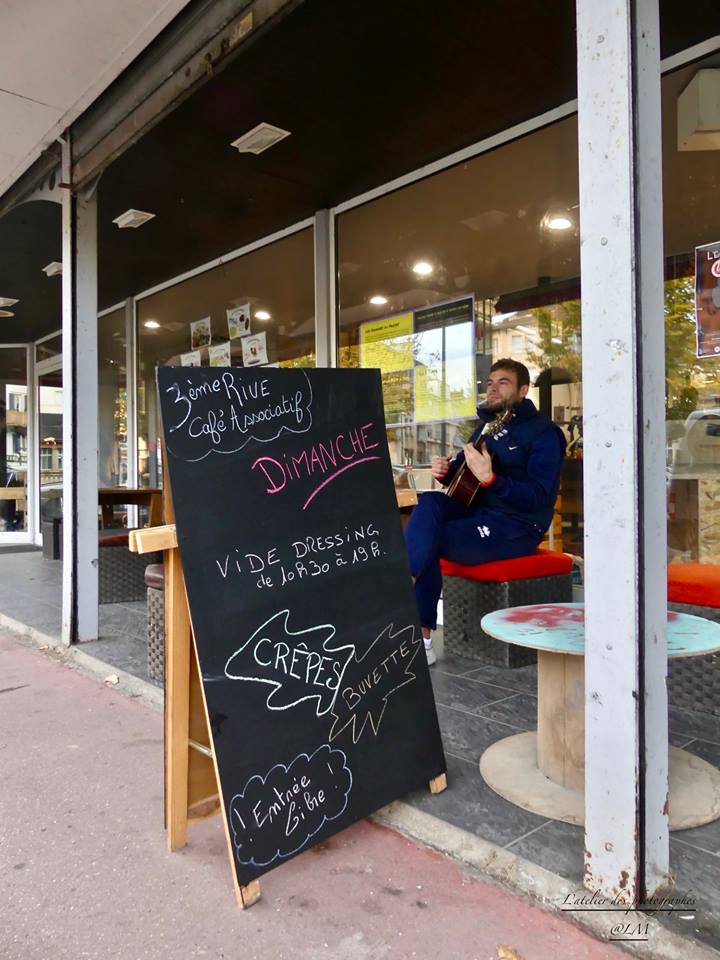 3ème RIVE
Café Associatif
DIMANCHE
VIDE DRESSING
de 10h30 à 19h.
CRÊPES
BUVETTE
! Entrée
Libre !
L'atelier des photographes
@LM